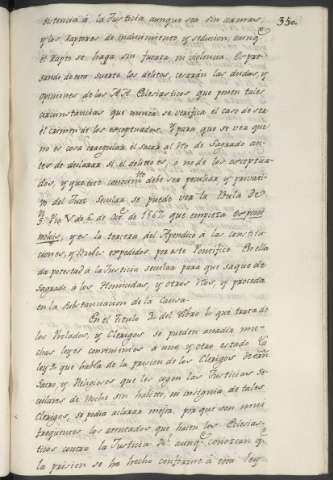 350.
sistencia á la Justicia aunque sea sin armas,
y los raptores de induzimiento, y seducion, aunq.e
el Rapto se haga sin fuerza, ni violencia. Expre-
sando de otra suerte los delitos, cesarán las dudas, y
opiniones de los A.A. Eclesiasticos que ponen tales
circunstancias que nunca se verifica el caso de ser
el crimen de los exceptuados. Y para que se vea que
no es cosa irregular el sacar al Reo de Sagrado an-
tes de declarar si el delito es, ó no de los exceptua-
dos, y que este conocim.to debe ser peculiar, y privati-
vo del Juez secular se puede ver la Bula De
S. Pio V. de 6. de Oct.e de 1567. que empieza
y es la tercera del Apendice á las constitu-
ciones, y Bulas expedidas por este Pontifice. En ella
da potestad á la Justicia secular para que saque de
Sagrado á los Homicidas, y otros Reos, y proceda
en la substanciacion de la Causa.
En el Titulo 3. del Libro 1.o que trata de
los Prelados, y Clerigos se pueden anadir mu-
chas leyes convenientes á uno, y otro estado. La
ley 2. que habla de la prision de los Clerigos
Sacro, y Religiosos que se cogen las Justicias Se-
culares de noche sin habito, ni insignia de tales
Clerigos, se podia aclarar mejor, por que son mui
frequentes los atentados que hacen los Eclesias-
ticos contra la Justicia R.l aunq.e conozcan q.e
la prision se ha hecho conforme á esta ley